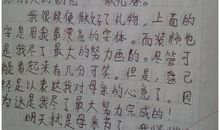 我很快便做好了礼物,上面的
字是用我最漂亮的字体。而装饰也
是我尽了最大的努力画的。尽管可
能看起来有几分可笑。但是,意已
经足以表达我对母亲的心意了。因
为这是我尽了最大努力完成的!
明天就是母亲节了,我